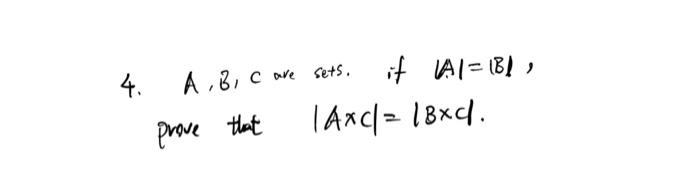 4. A, B, C are sets. if |A|=|B|,
prove that |A×C|=|B×C|.